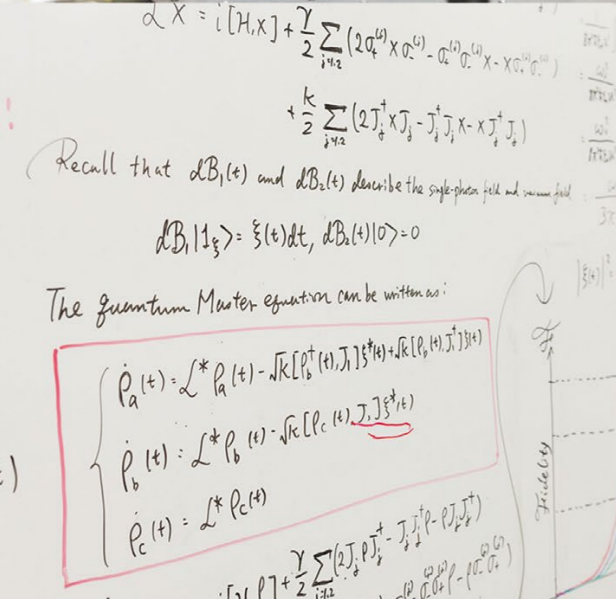 𝓛X = i[H,X] + γ/2 Σ_{j=1,2} (2σ₊^{(j)} X σ₋^{(j)} - σ₊^{(j)} σ₋^{(j)} X - X σ₊^{(j)} σ₋^{(j)})
+ k/2 Σ_{j=1,2} (2J_j^† X J_j - J_j^† J_j X - X J_j^† J_j)
Recall that dB₁(t) and dB₂(t) describe the single-photon field and vacuum field
dB₁|1_ξ> = ξ(t)dt, dB₂(t)|0> = 0
The quantum Master equation can be written as:
ρ̇_a(t) = 𝓛*ρ_a(t) - √k[ρ_b^†(t), J₁]ξ*(t) + √k[ρ_b(t), J^†]ξ(t)
ρ̇_b(t) = 𝓛*ρ_b(t) - √k[ρ_c(t), J₁]ξ*(t)
ρ̇_c(t) = 𝓛*ρ_c(t)
+ γ/2 Σ_{j=1,2} (2J_j ρ J_j^† - J_j J_j^† ρ - ρ J_j J_j^†)
|ξ(t)|²
Fidelity